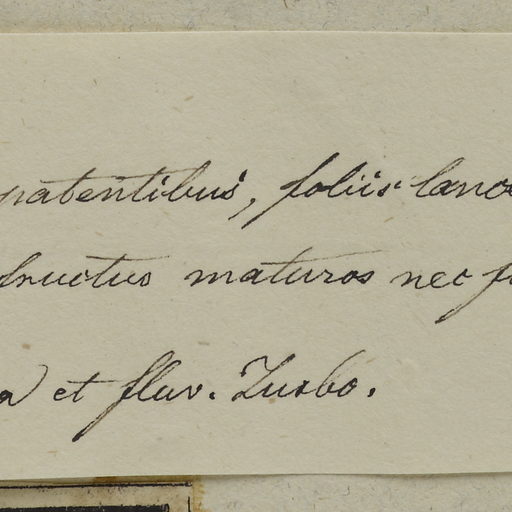 patentibus, foliis lanc
fructus maturos nec f
a et fluv. Turbo.